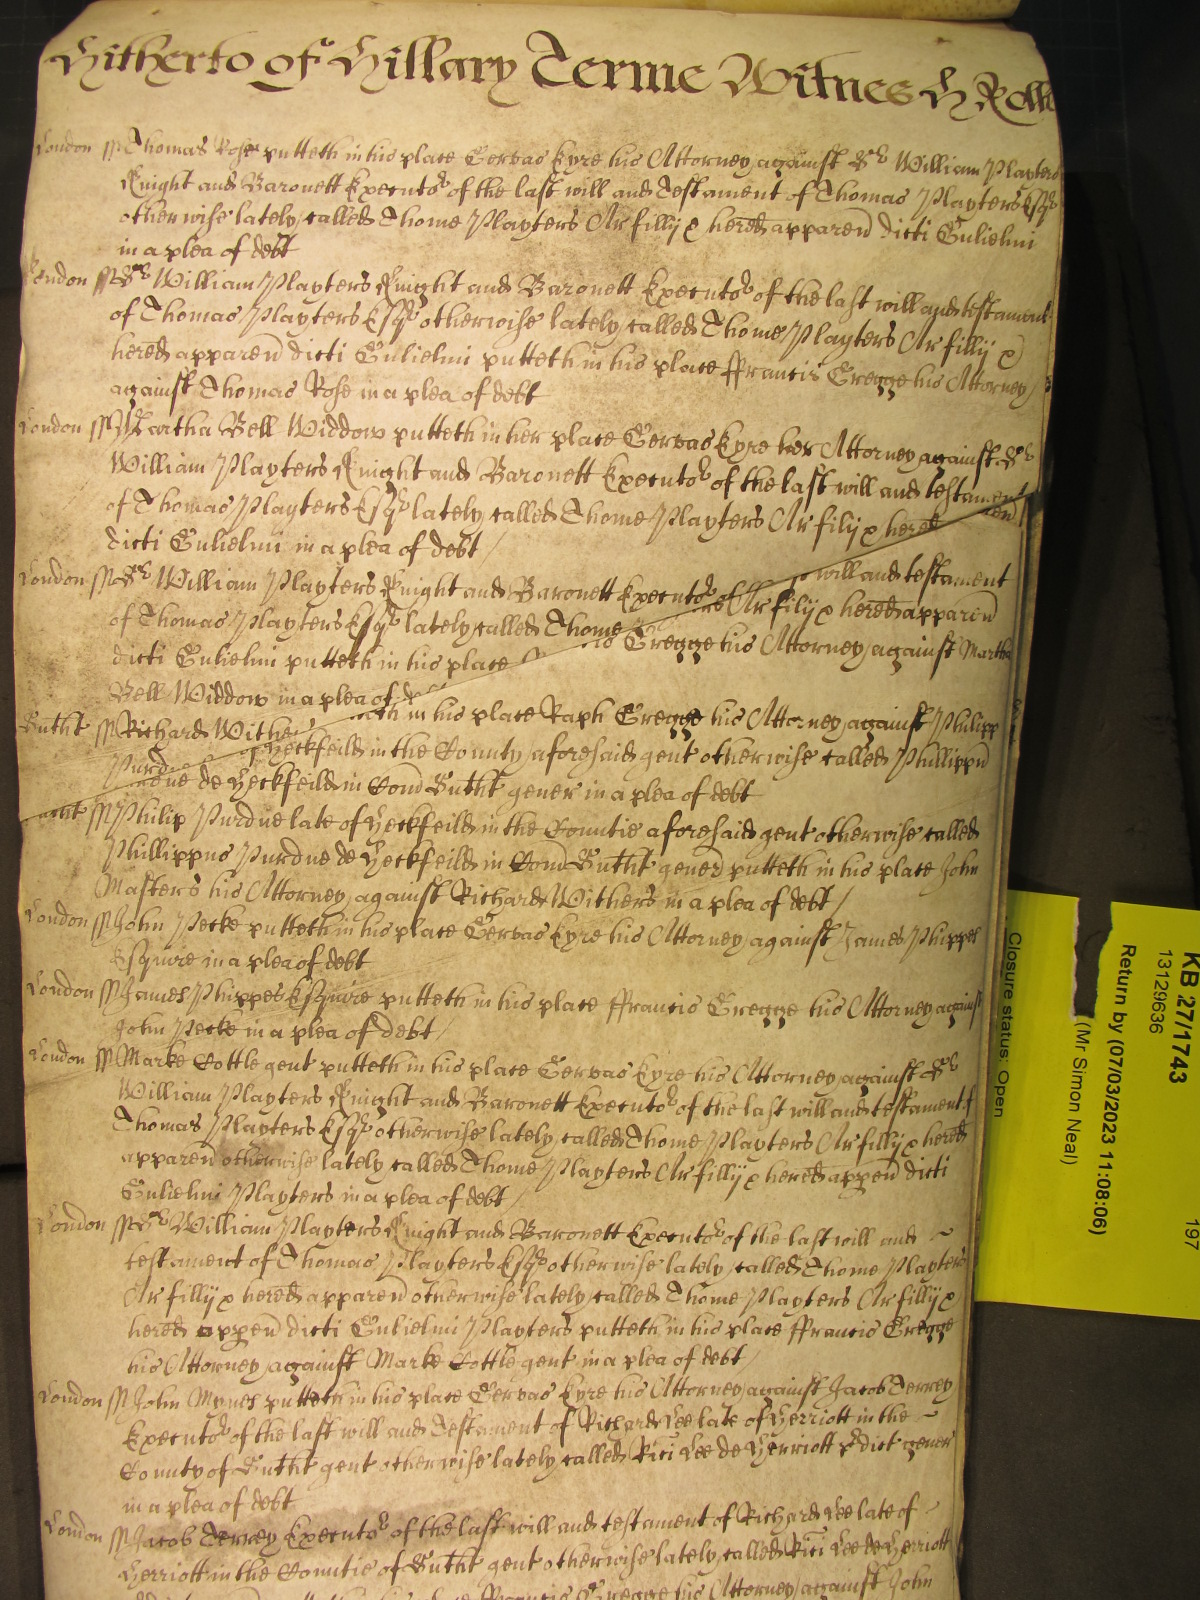 Hitherto of Hillary Terme Witnes H Rolle
London ss Thomas Rose putteth in his place Gervas Eyre his Attorney against Sr William Playters
Knight and Baronett Executor of the last will and Testament of Thomas Playters Esqr
otherwise lately called Thome Playters Ar fillij & hered apparen dicti Gulielmi
in a plea of debt
London ss Sr William Playters Knight and Baronett Executor of the last will and testament
of Thomas Playters Esqr otherwise lately called Thome Playters Ar fillij &
hered apparen dicti Gulielmi putteth in his place ffrancis Gregge his Attorney
against Thomas Rose in a plea of debt
London ss Martha Bell Widdow putteth in her place Gervas Eyre her Attorney against Sr
William Playters Knight and Baronett Executor of the last will and testament
of Thomas Playters Esqr lately called Thome Playters Ar filij & hered
dicti Gulielmi in a plea of debt
London ss Sr William Playters Knight and Baronett Executor of will and testament
of Thomas Playters Esqr lately called Thome Ar filij & hered apparen
dicti Gulielmi putteth in his place Gregge his Attorney against Martha
Bell Widdow in a plea of
Sutht ss Richard Withe in his place Raph Gregge his Attorney against Philipp
Purd of Heckfeild in the County aforesaid gent otherwise called Phillippu
de Heckfeild in Com Sutht gener in a plea of debt
ss Philip Purdue late of Heckfeild in the Countie aforesaid gent otherwise called
Phillippus Purdue de Heckfeild in Com Sutht gener putteth in his place John
Masters his Attorney against Richard Withers in a plea of debt
London ss John Pecke putteth in his place Gervas Eyre his Attorney against James Phippes
Esquire in a plea of debt
London ss James Phippes Esquire putteth in his place ffrancis Gregge his Attorney against
John Pecke in a plea of debt
London ss Marke Cottle gent putteth in his place Gervas Eyre his Attorney against Sr
William Playters Knight and Baronett Executor of the last will and testament of
Thomas Playters Esqr otherwise lately called Thome Playters Ar fillij & hered
apparen otherwise lately called Thome Playters Ar fillij & hered appen dicti
Gulielmi Playters in a plea of debt
London ss Sr William Playters Knight and Baronett Executor of the last will and
testament of Thomas Playters Esqr otherwise lately called Thome Playters
Ar fillij & hered apparen otherwise lately called Thome Playters Ar fillij &
hered appen dicti Gulielmi Playters putteth in his place ffrancis Gregge
his Attorney against Marke Cottle gent in a plea of debt
London ss John Mynes putteth in his place Gervas Eyre his Attorney against Jacob Terrey
Executor of the last will and Testament of Richard Lee late of Herriott in the
County of Sutht gent otherwise lately called Rici Lee de Herriott dict gener
in a plea of debt
London ss Jacob Terrey Executor of the last will and testament of Richard Lee late of
Herriott in the Countie of Sutht gent otherwise lately called Rici Lee de Herriott
putteth in his place ffrancis Gregge his Attorney against John
KB 27/1743
13129636
197
Return by (07/03/2023 11:08:06)
(Mr Simon Neal)
Closure status: Open